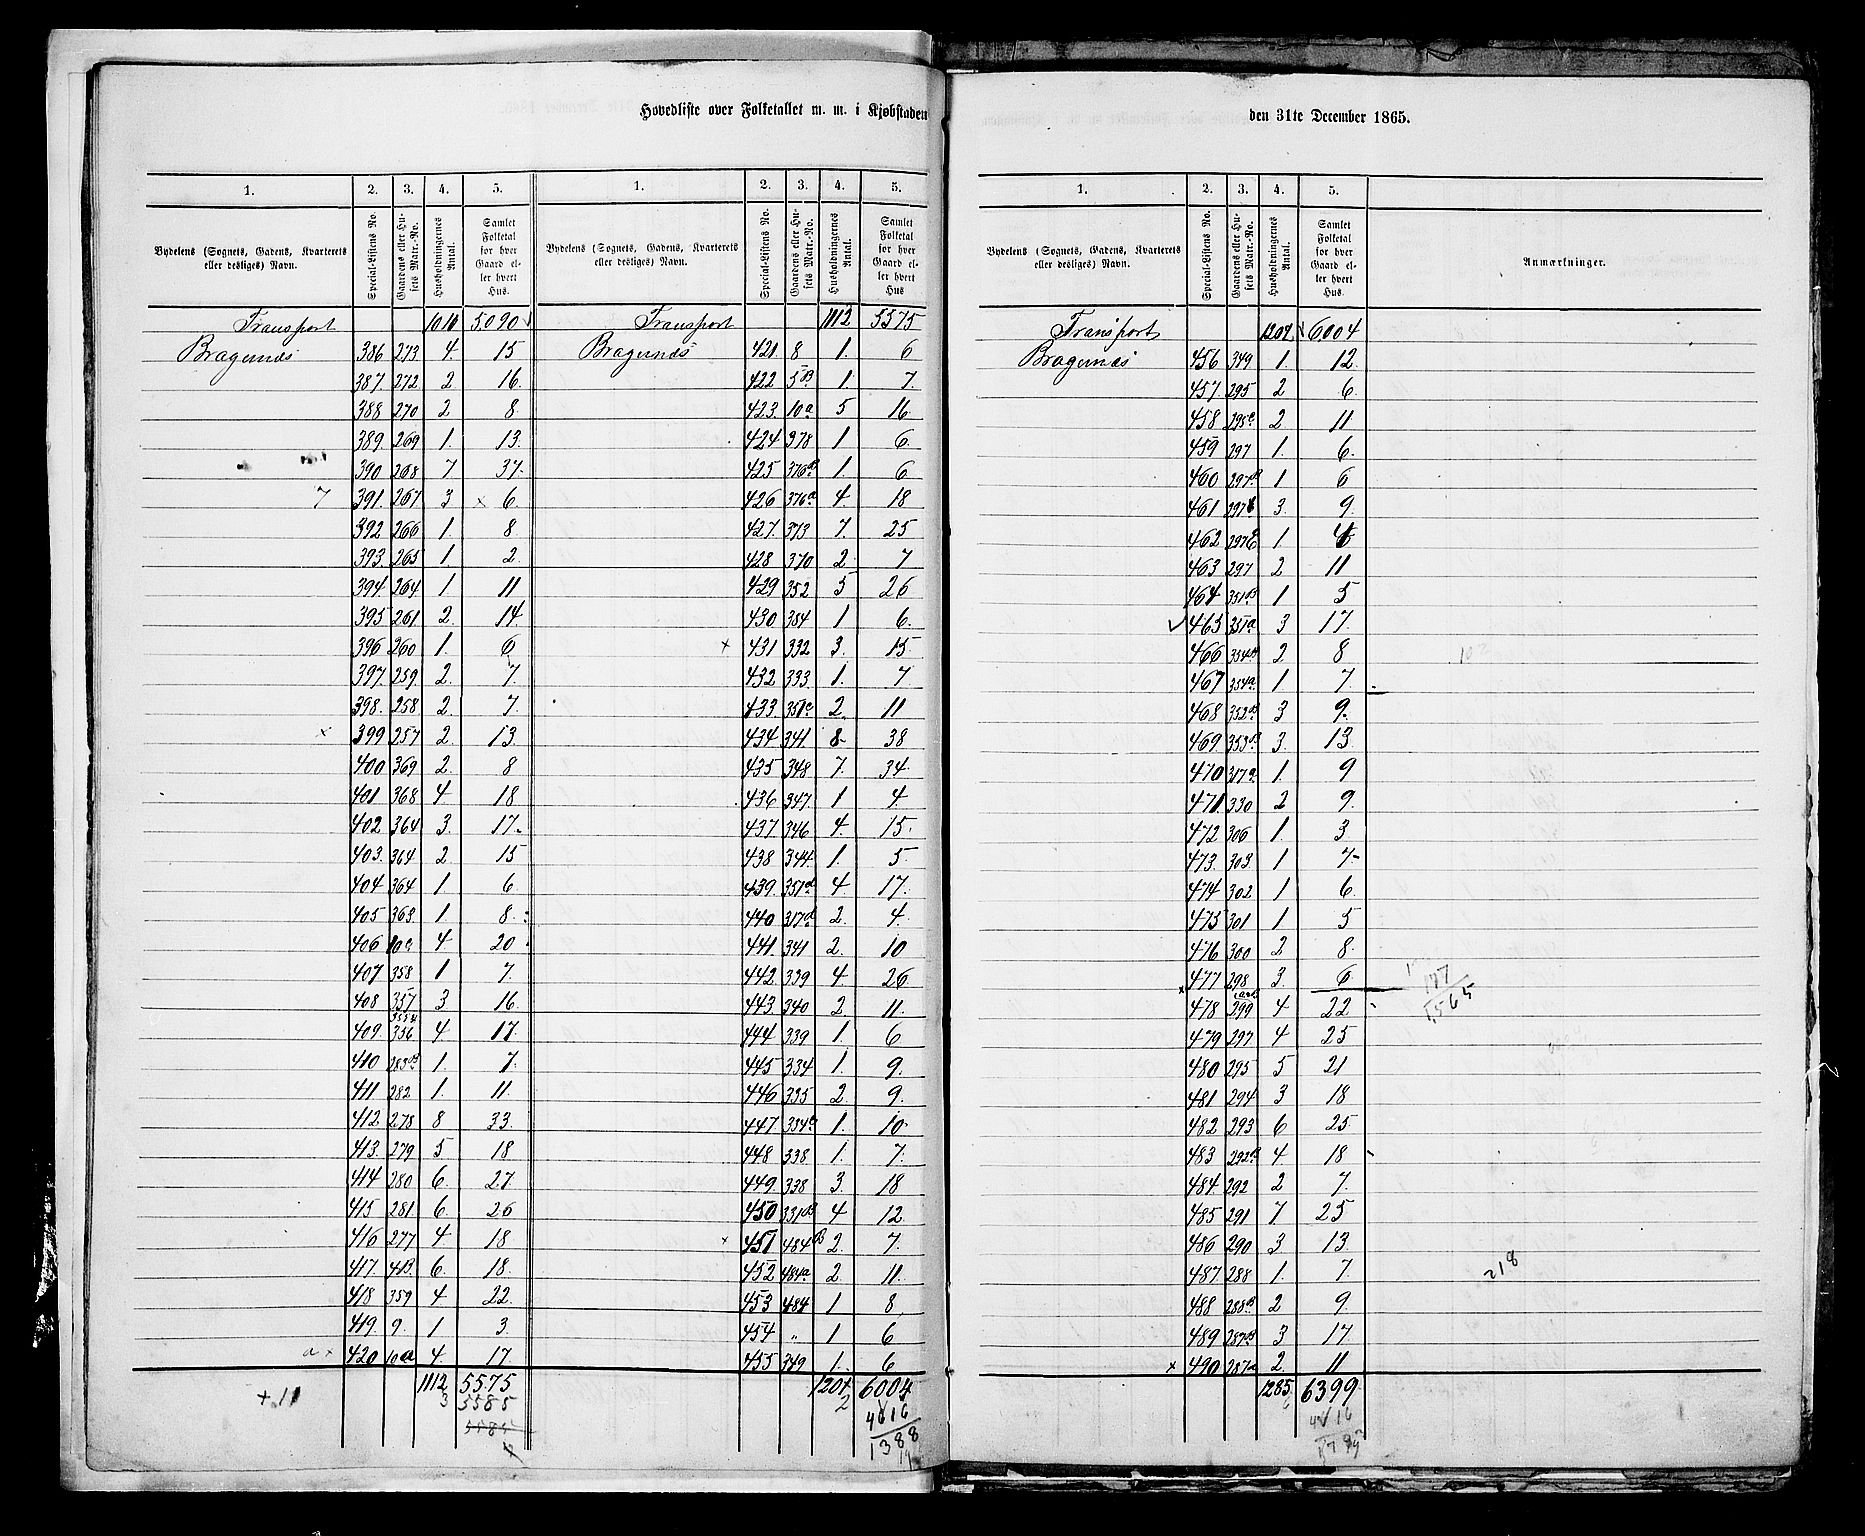 Hovedliste over Folketallet m. m. i Kjøbstaden
1. 2. 3. 4. 5. 1. 2. 3. 4. 5.
Bydelens (Sognets, Gadens, Kvarterets eller desliges) Navn. Special-Listens No. Gaardens eller Husets Matr.-No. Husholdningernes Antal. Samlet Folketal for hver Gaard eller hvert Hus. Bydelens (Sognets, Gadens, Kvarterets eller desliges) Navn. Special-Listens No. Gaardens eller Husets Matr.-No. Husholdningernes Antal. Samlet Folketal for hver Gaard eller hvert Hus
Transport 1010 5090 Transport 1112 5575
Bragernæs 386 273 4. 15 Bragernæs 421 8 1. 6
387. 272 2 16. 422 5B 1. 7.
388 270 2 8. 423. 10a 5 16
389. 269 1. 13. 424 378 1 6.
390 268 7. 37. 425 376B 1. 6
7 391. 267 3 x 6. 426 376a 4. 18
392 266 1. 8 427. 373 7. 25
393. 265 1. 2. 428 370 2 7
394. 264 1 11 429 352 5 26
395 261 2. 14. 430 384 1 6.
396 260 1. 6 x 431 332 3. 15.
397. 259. 2. 7. 432 333 1. 7
398. 258 2. 7. 433 351c 2. 11
x 399 257 2. 13. 434 341. 8 38
400 369 2. 8 435 348 7. 34
401 368 4 18 436 347. 1 4.
402 364 3. 17. 437 346 4. 15.
403. 364 2. 15 438 344. 1. 5
404 364 1 6 439. 351d 4. 17.
405 363. 1. 8. 440 317d 2. 4.
406 10a 4. 20 441. 341 2. 10
407 358 1 7. 442 339 4. 26
408 357 3 16. 443. 340 2 11.
409. 356 4. 17. 444 339 1. 6
410 283B 1. 7. 445 334 1. 9.
411 282 1. 11. 446 335 2. 9.
412 278 8 33. 447 1. 10
413. 279 5 18 448 338 1. 7.
414 280 6. 27. 449. 338 3. 18
415 281. 6. 26 450 331B 4 12
416 277 4 18 x 451 484B 2. 7.
417. 4B. 6. 18. 452 484a 2. 11.
418 359 4 22. 453 484 1 8
419. 9. 1 3. 454 „ 1 6
a x 420 10a 4. 17. 455 349 1. 6
1112 5575 1201 6004
+ 11 3 5585 2 4616
5585 1388
den 31te December 1865.
1. 2. 3. 4. 5.
Bydelens (Sognets, Gadens, Kvarterets eller desliges) Navn. Special-Listens No. Gaardens eller Husets Matr.-No. Husholdningernes Antal. Samlet Folketal for hver Gaard eller hvert Hus. Anmærkninger.
Transport 1201 6004
Bragernæs 456 349 1. 12.
457. 295 2 6.
458 295c 2 11
459 297 1. 6.
460 297B 1 6
461 3. 9.
462 1
463 297 2 11
464 351B 1 5
465 351a 3 17.
466 354B 2 8
467 354a. 1 7.
468 352B 3 9.
469. 353B 3. 13
470 317a 1. 9
471. 330 2 9.
472 306 1. 3.
473. 303 1 7
474 302 1 6.
475 301 1 5
476 300 2 8
x 477 298 3. 6
177
478 299 4 22
1,565
479 297 4 25
480 295 5 21
481 294 3 18
482 293 6 25
483 292B 4. 18
484. 292 2 7.
485. 291 7 25
486 290 3 13.
487. 288 1. 7.
218
488 288B 2 9.
489 287B 3 17
x 490 287a 2. 11
1285 6399
4616